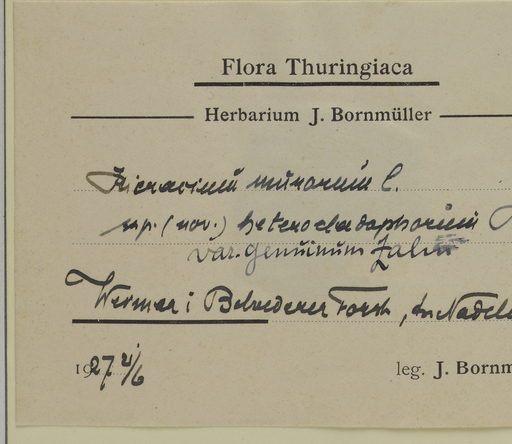 Flora Thuringiaca
Herbarium J. Bornmüller
Hieracium murorum L.
ssp. (nov.) heterocladophorum
var. genuinum Zahn
Weimar: Belvederer Forst, in Nadel
1927 4/6
leg. J. Bornm